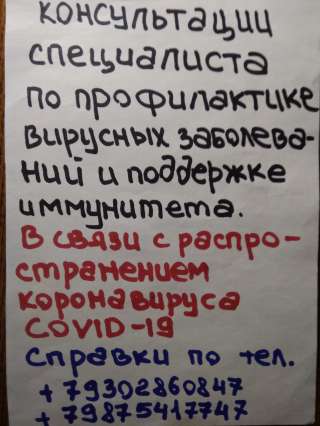 консультации
специалиста
по профилактике
вирусных заболева-
ний и поддержке
иммунитета.
В связи с распро-
странением
коронавируса
COVID-19
Справки по тел.
+79302860847
+79875417747